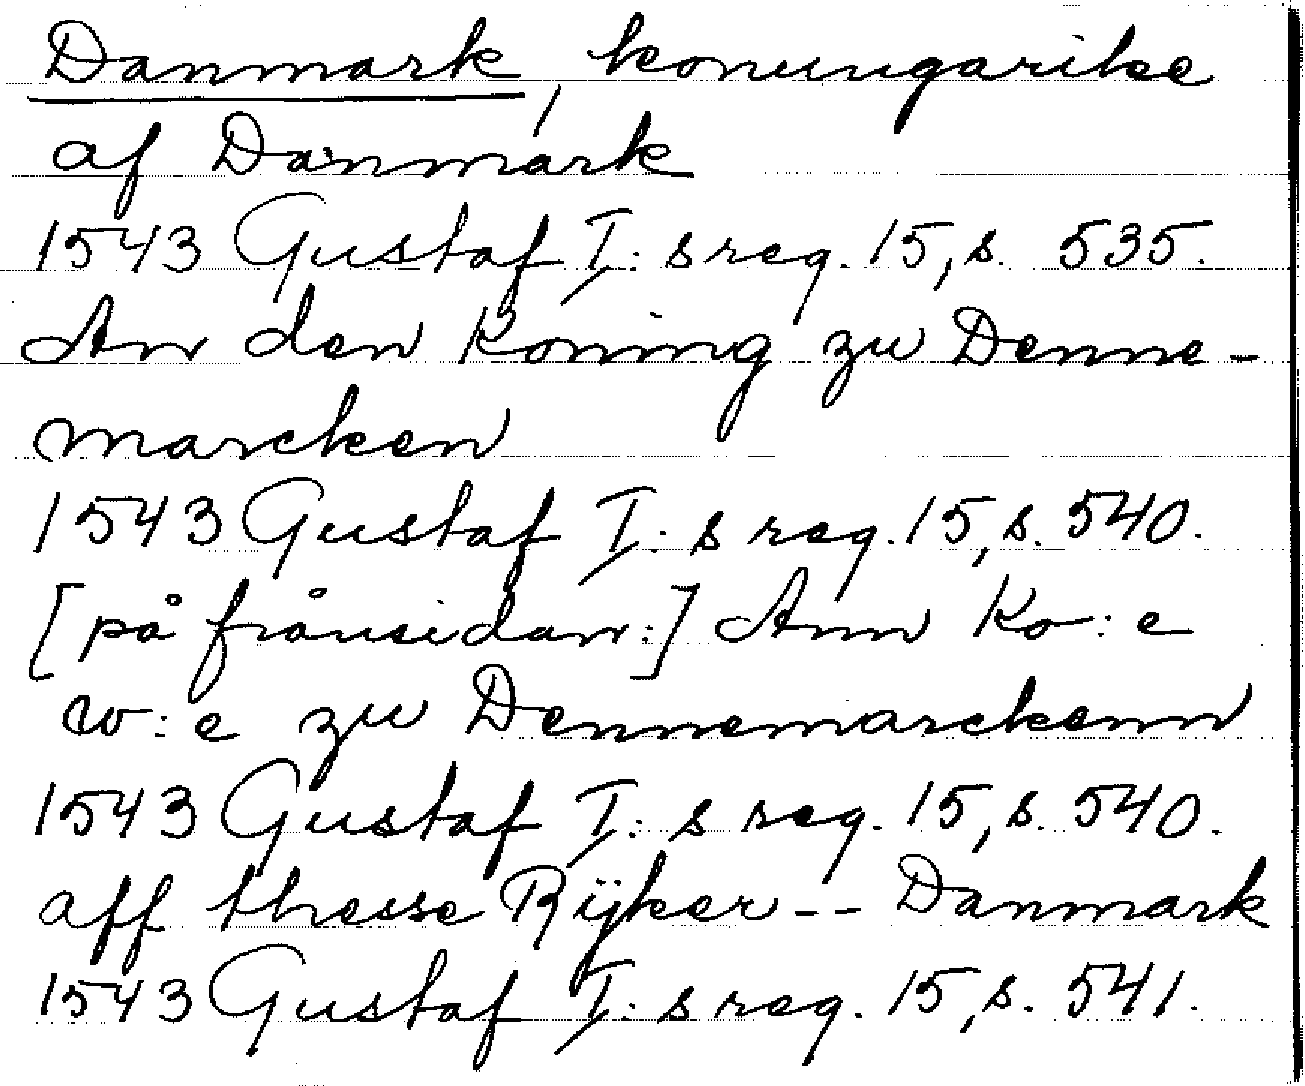 Danmark, konungarike
af Danmark
1543 Gustaf I:s reg. 15, s. 535.
An den Koning zu Denne-
marcken
1543 Gustaf I:s reg. 15, s. 540.
[på frånsidan:] Ann Ko:e
w:e zu Dennemarckenn
1543 Gustaf I:s reg. 15, s. 540.
aff thesse Rijker -- Danmark
1543 Gustaf I:s reg. 15, s. 541.